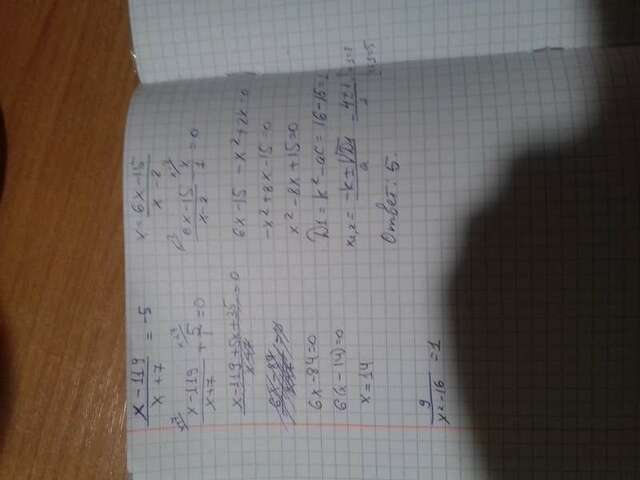 x - 119 / x + 7 = -5
x - 119 / x + 7 + 5 / 1 = 0
x - 119 + 5x + 35 / x + 7 = 0
6x - 84 = 0
6(x - 14) = 0
x = 14
9 / x² - 16 = 1
x = 6x - 15 / x - 2
6x - 15 / x - 2 - x / 1 = 0
6x - 15 - x² + 2x = 0
-x² + 8x - 15 = 0
x² - 8x + 15 = 0
D1 = k² - ac = 16 - 15 = 1
x1,2 = -k ± √D1 / a = 4 ± 1
Ответ: 5.